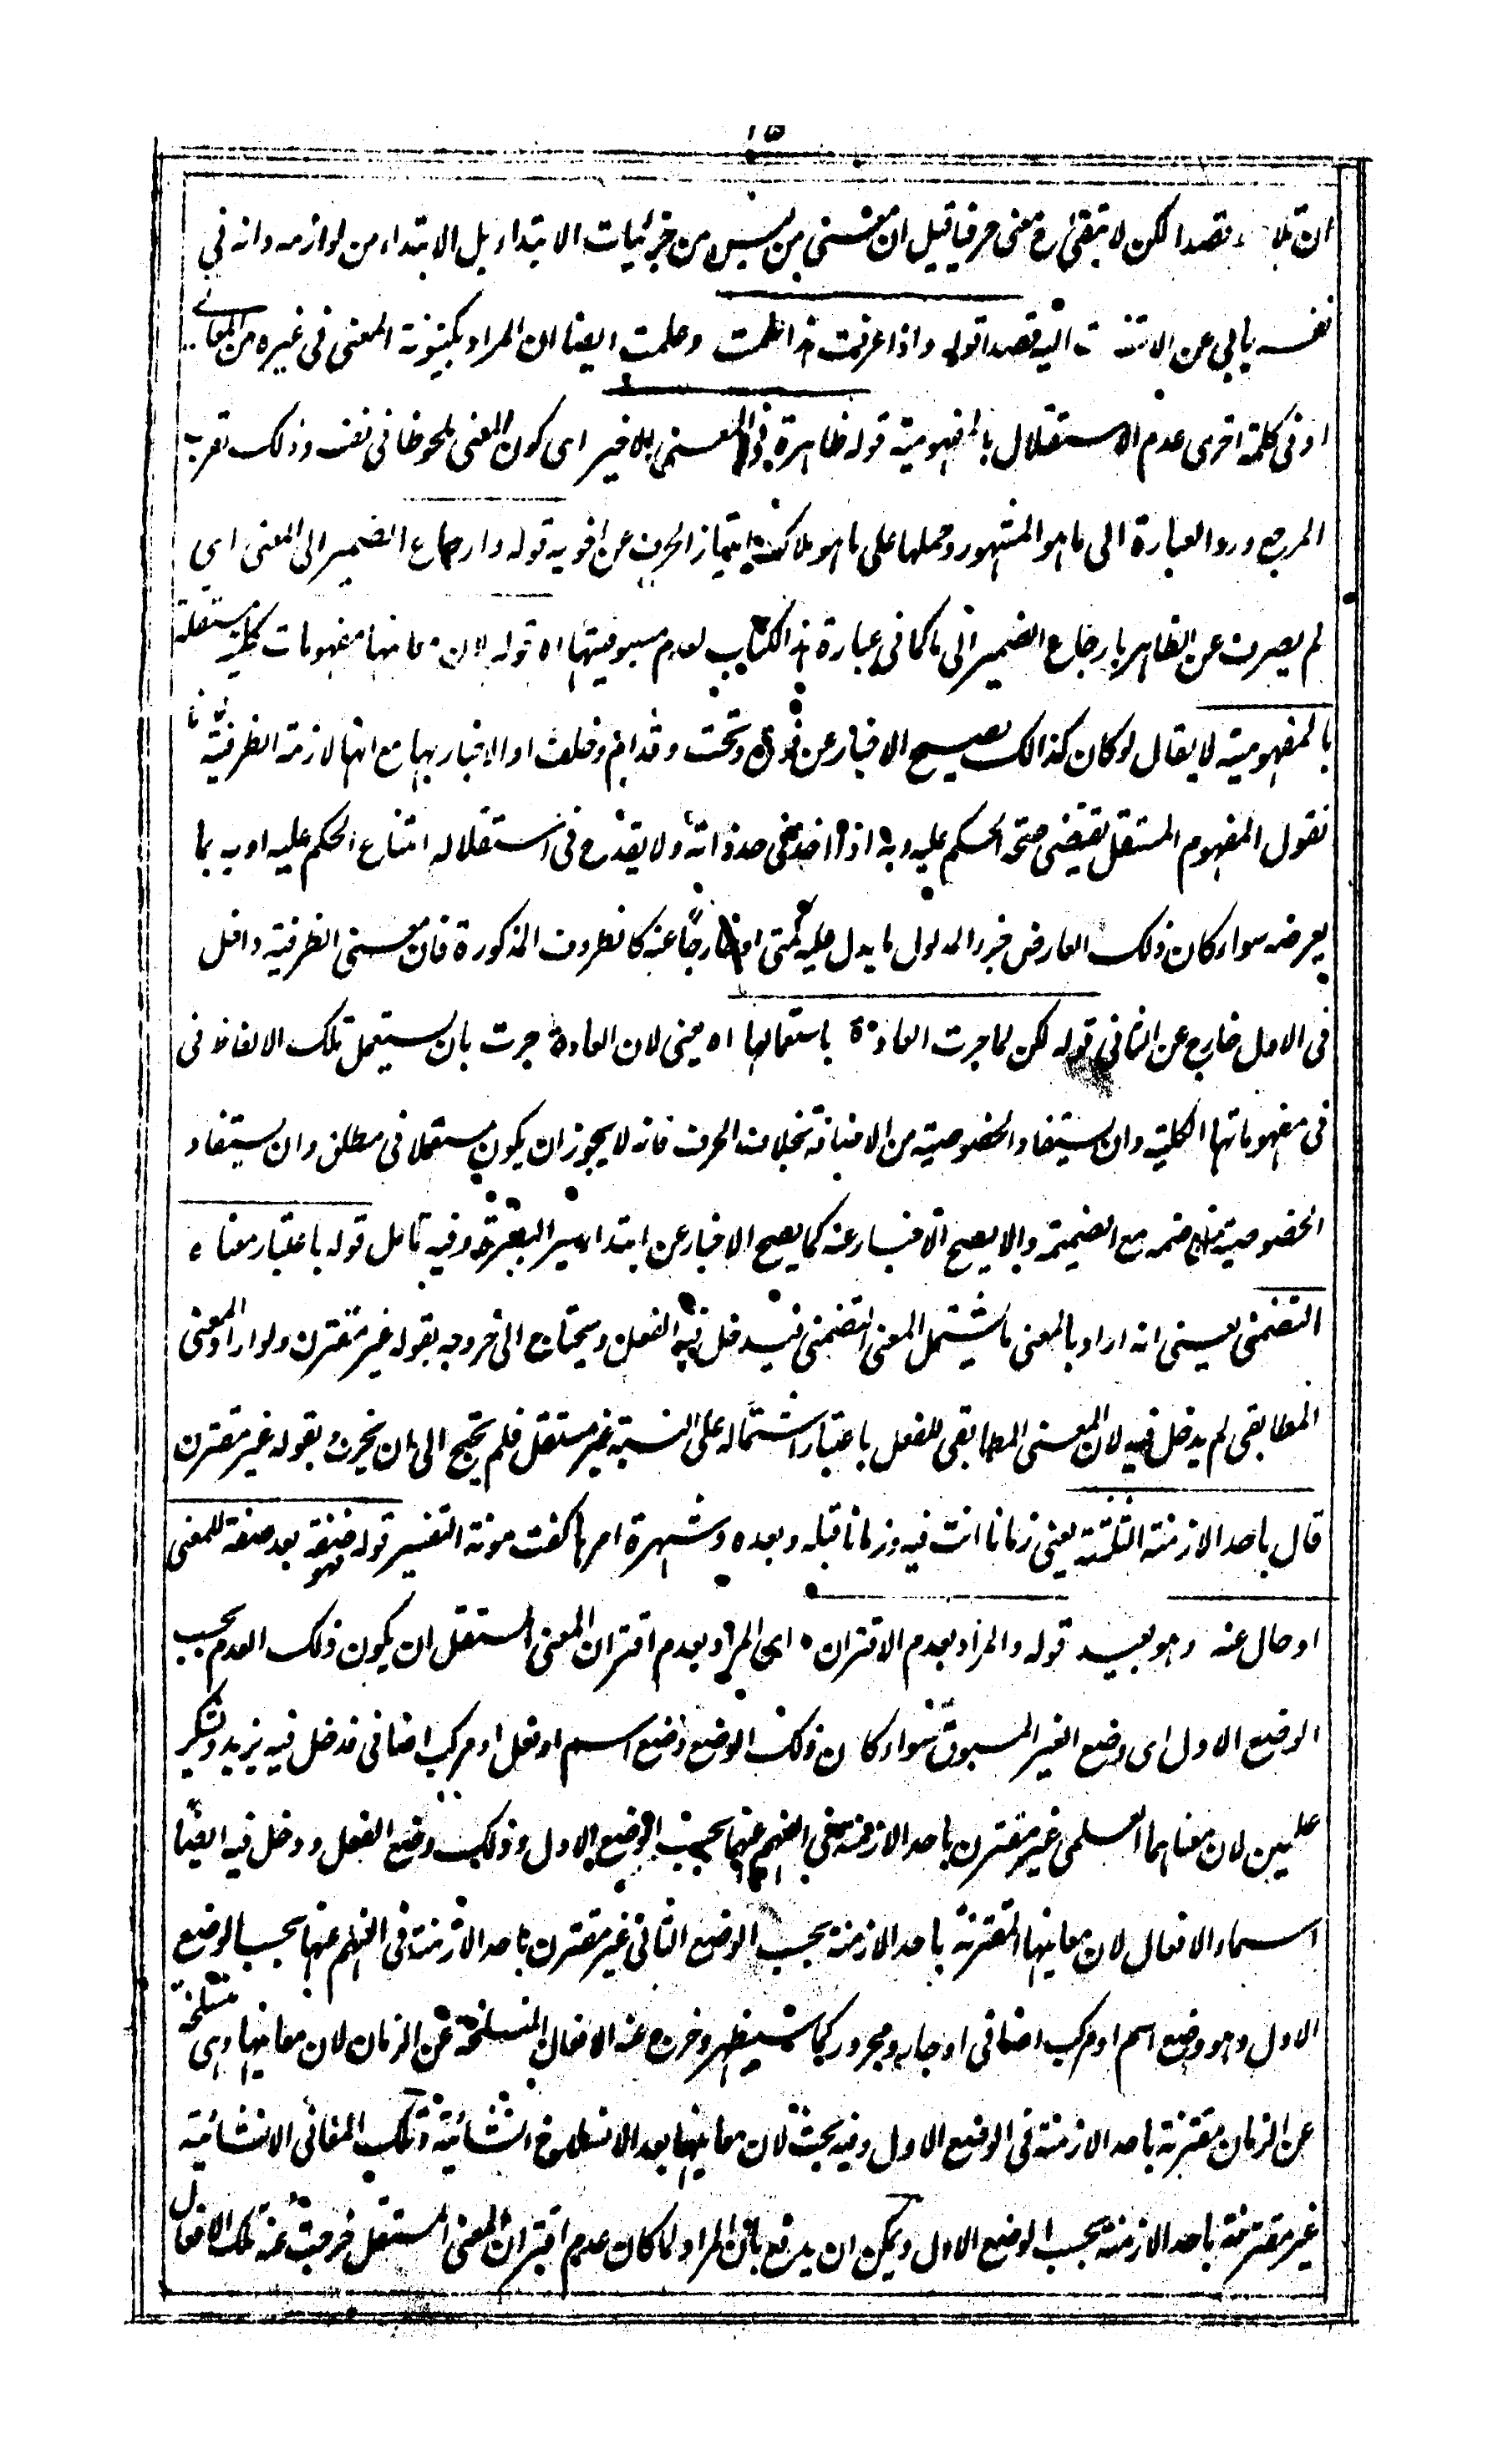 ١٥
ان تلا قصدا لكن لا تبقى ح معنى حرفيا قيل ان معنى من ليس من جزئيات الابتداء بل الابتداء من لوازمه وانه في
نفسه يابى عن الالتفات اليه قصدا قوله واذا عرفت هذا علمت وعلمت ايضا ان المراد بكينونة المعنى في غيره من المعاني
او في كلمة اخرى عدم الاستقلال بالمفهومية قوله ظاهرة في المعنى الاخير اى كون المعنى ملحوظا في نفسه وذلك لقرب
المرجع ورد العبارة الى ما هو المشهور وحملها على ما هو ملاك امتياز الحرف عن اخويه قوله وارجاع الضمير الى المعنى اى
لم يصرف عن الظاهر بارجاع الضمير الى ما كما في عبارة هذا الكتاب لعدم مسبوقيتها اه قوله لان معانيها مفهومات كلية مستقلة
بالمفهومية لا يقال لو كان كذالك لصح الاخبار عن فوق وتحت وقدام وخلف او الاخبار بها مع انها لازمة الظرفية لانا
نقول المفهوم المستقل يقتضى صحة الحكم عليه وبه اذا اخذ في حد ذاته ولا يقدح في استقلاله امتناع الحكم عليه او به بما
يعرضه سواء كان ذلك العارض جزء المدلول ما يدل عليه كمتى او خارجًا عنه كالظروف المذكورة فان معنى الظرفية داخل
في الاول خارج عن الثاني قوله لكن لما جرت العادة باستعمالها اه يعنى لان العادة جرت بان يستعمل تلك الالفاظ في
في مفهوماتها الكلية وان يستفاد الخصوصية من الاضافة بخلاف الحرف فانه لا يجوز ان يكون مستعملا في مطلق وان يستفاد
الخصوصية من ضمه مع الضميمة والا يصح الاخبار عنه كما يصح الاخبار عن ابتداء سير البصرة وفيه تامل قوله باعتبار معناه
التضمنى يعنى انه اراد بالمعنى ما يشتمل المعنى التضمنى فيدخل فيه الفعل ويحتاج الى خروجه بقوله غير مقترن ولو اراد المعنى
المطابقى لم يدخل فيه لان المعنى المطابقى للفعل باعتبار اشتماله على النسبة غير مستقل فلم يحتج الى ان يخرج بقوله غير مقترن
قال باحد الازمنة الثلثة يعنى زمانا انت فيه وزمانا قبله وبعده وشهرة امرها كفت مونة التفسير قوله فهو صفة بعد صفة للمعنى
او حال عنه وهو بعيد قوله والمراد بعدم الاقتران اى المراد بعدم اقتران المعنى المستقل ان يكون ذلك العدم بحسب
الوضع الاول اى وضع الغير المسبوق سواء كان ذلك الوضع وضع اسم او فعل او مركب اضافى فدخل فيه يزيد ويشكر
علمين لان معناهما العلمى غير مقترن باحد الازمنة في الفهم عنهما بحسب الوضع الاول وذلك وضع الفعل ودخل فيه ايضًا
اسماء الافعال لان معانيها المقترنة باحد الازمنة بحسب الوضع الثانى غير مقترن باحد الازمنة في الفهم عنها بحسب الوضع
الاول وهو وضع اسم او مركب اضافى او جار ومجرور كما سيظهر وخرج عنه الافعال المنسلخة عن الزمان لان معانيها وهى منسلخة
عن الزمان مقترنة باحد الازمنة في الوضع الاول وفيه بحث لان معانيها بعد الانسلاخ انشائية وتلك المعانى الانشائية
غير مقترنة باحد الازمنة بحسب الوضع الاول ويمكن ان يدفع بان المراد لما كان عدم اقتران المعنى المستقل خرجت عنه تلك الافعال